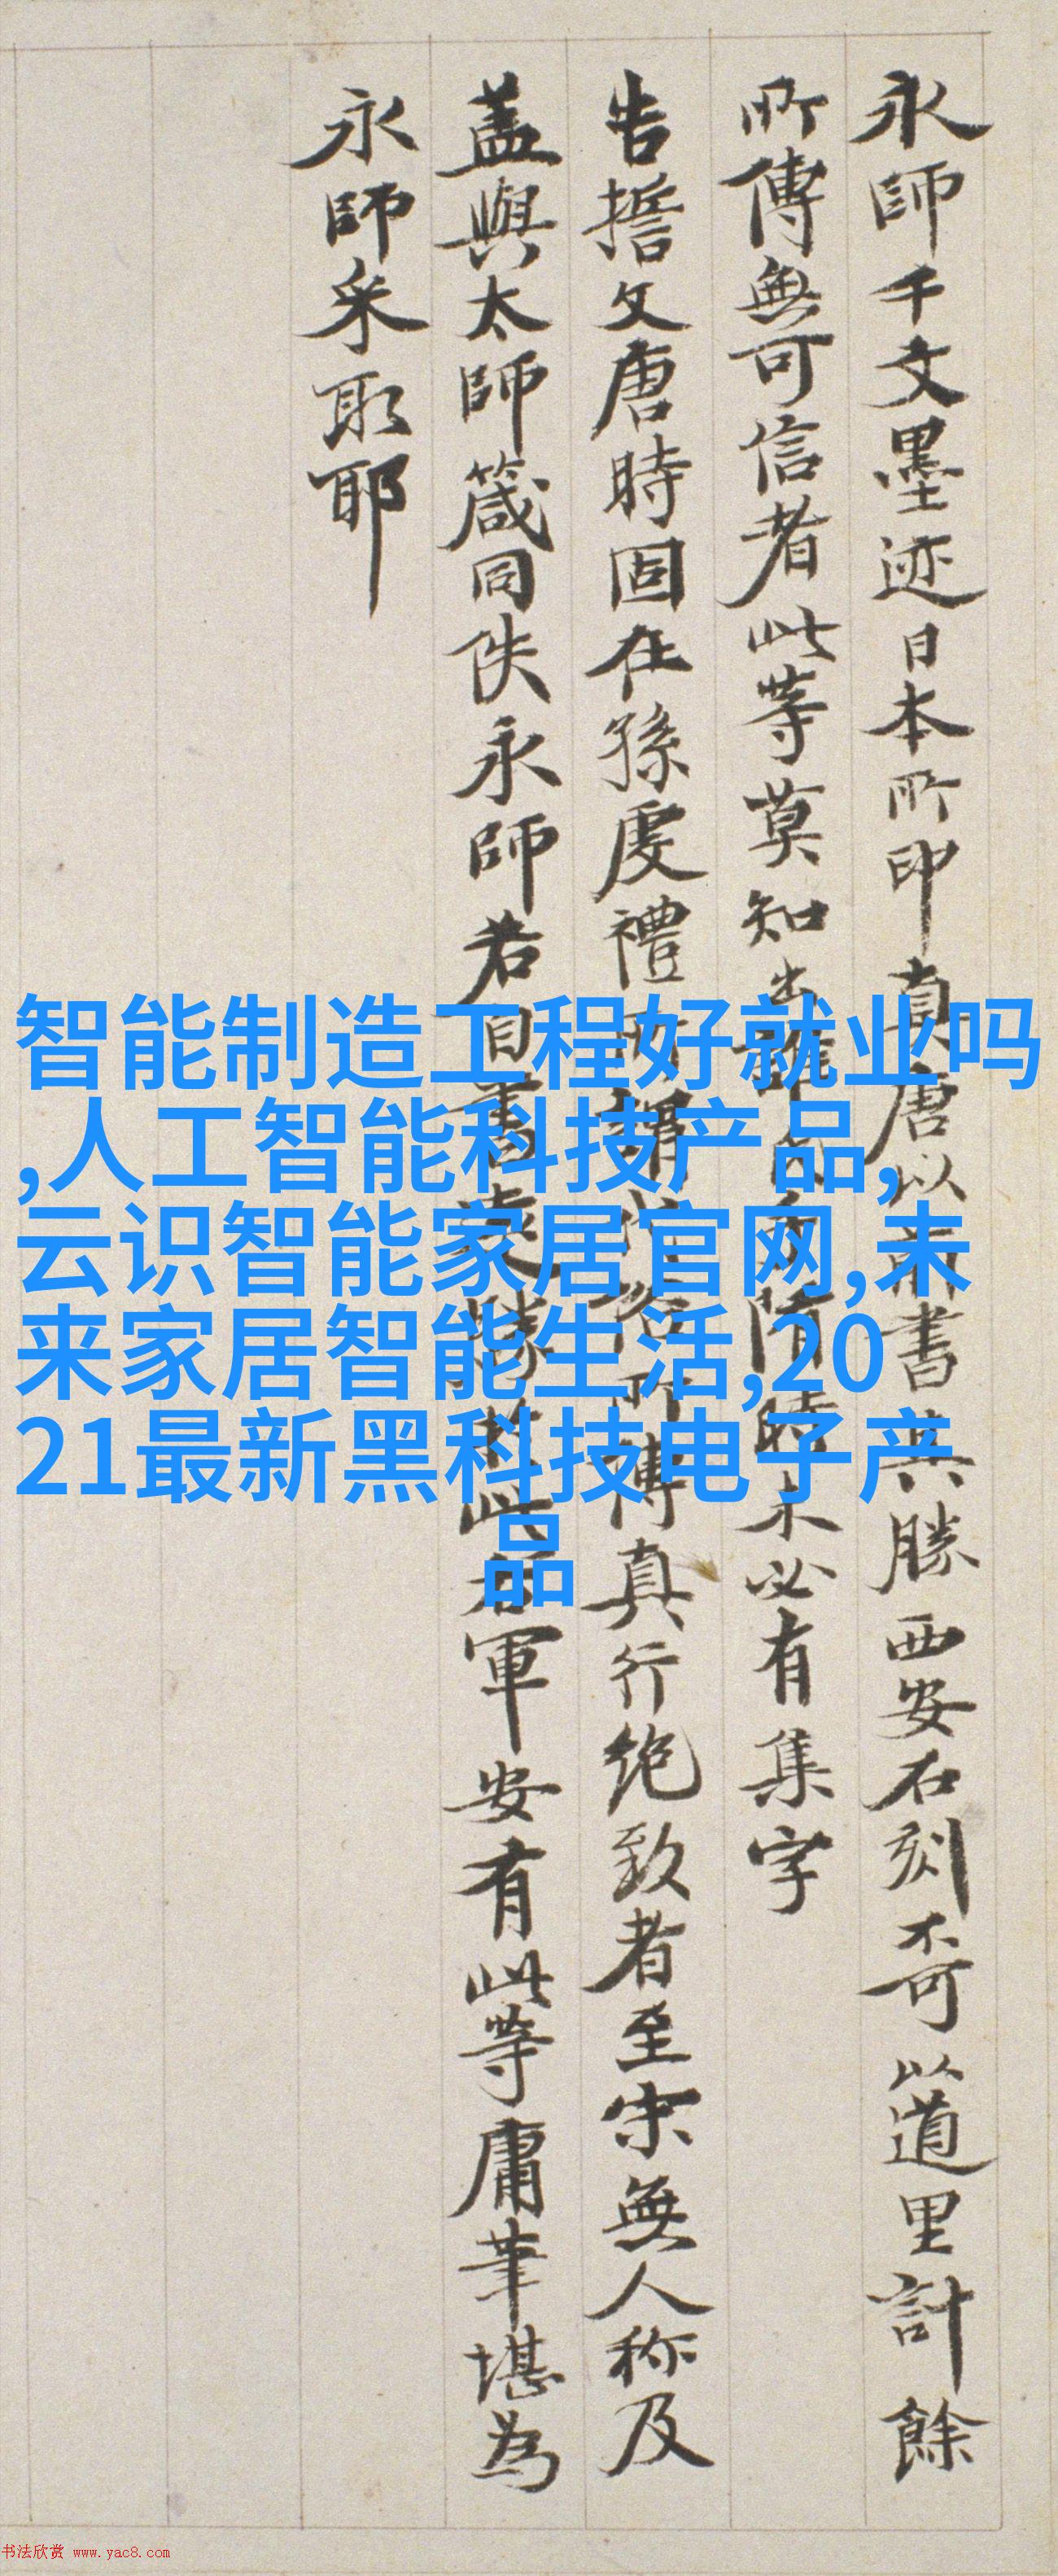 永師千文墨迹日本所印真唐以前書其勝西安石刻不可以道里計餘
所傳無可信者此等莫知出誰氏隋時未必有集字
告誓文唐時固在孫虔禮所謂代俗所傳真行絕致者至宋無人称及
蓋與太師箴同佚永師若自書遠勝於此右軍安有此等庸筆堪為
永師采取耶
智能制造工程好就业吗
,人工智能科技产品,
云识智能家居官网,未
来家居智能生活,20
21最新黑科技电子产
品
书法欣赏 www.yac8.com